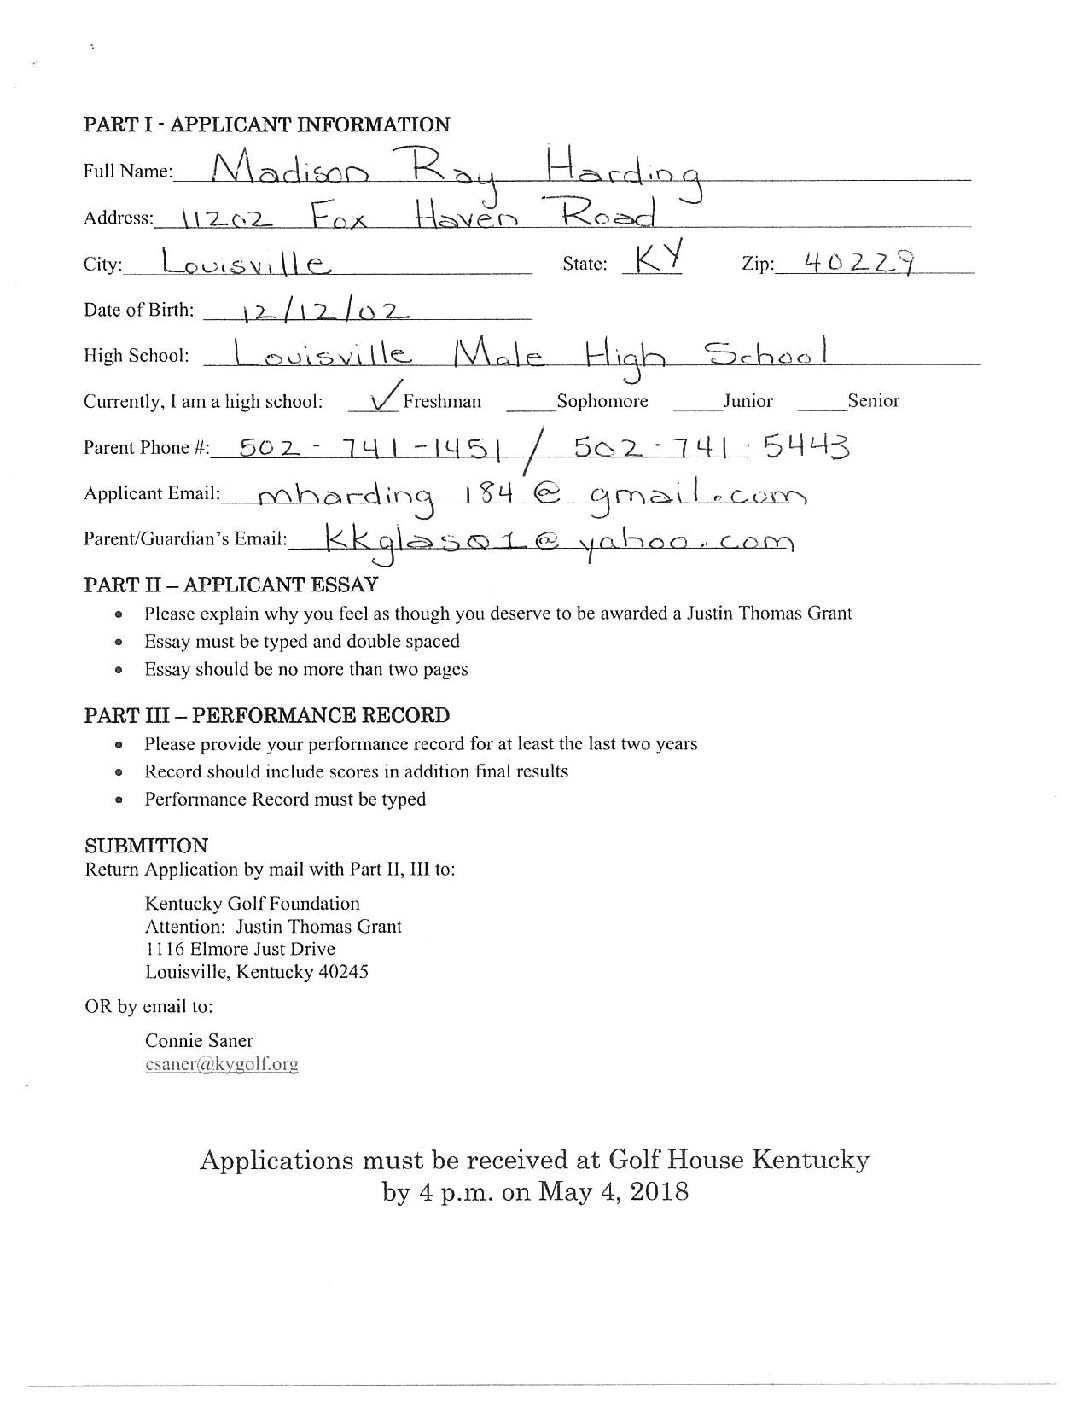 PART I - APPLICANT INFORMATION
Full Name: Madison Ray Harding
Address: 11202 Fox Haven Road
City: Louisville State: KY Zip: 40229
Date of Birth: 12/12/02
High School: Louisville Male High School
Currently, I am a high school: ✓ Freshman _____Sophomore _____Junior _____Senior
Parent Phone #: 502 - 741 - 1451 / 502 - 741 - 5443
Applicant Email: mharding184@gmail.com
Parent/Guardian's Email: kkglas01@yahoo.com
PART II – APPLICANT ESSAY
• Please explain why you feel as though you deserve to be awarded a Justin Thomas Grant
• Essay must be typed and double spaced
• Essay should be no more than two pages
PART III – PERFORMANCE RECORD
• Please provide your performance record for at least the last two years
• Record should include scores in addition final results
• Performance Record must be typed
SUBMITION
Return Application by mail with Part II, III to:
Kentucky Golf Foundation
Attention: Justin Thomas Grant
1116 Elmore Just Drive
Louisville, Kentucky 40245
OR by email to:
Connie Saner
csaner@kygolf.org
Applications must be received at Golf House Kentucky
by 4 p.m. on May 4, 2018